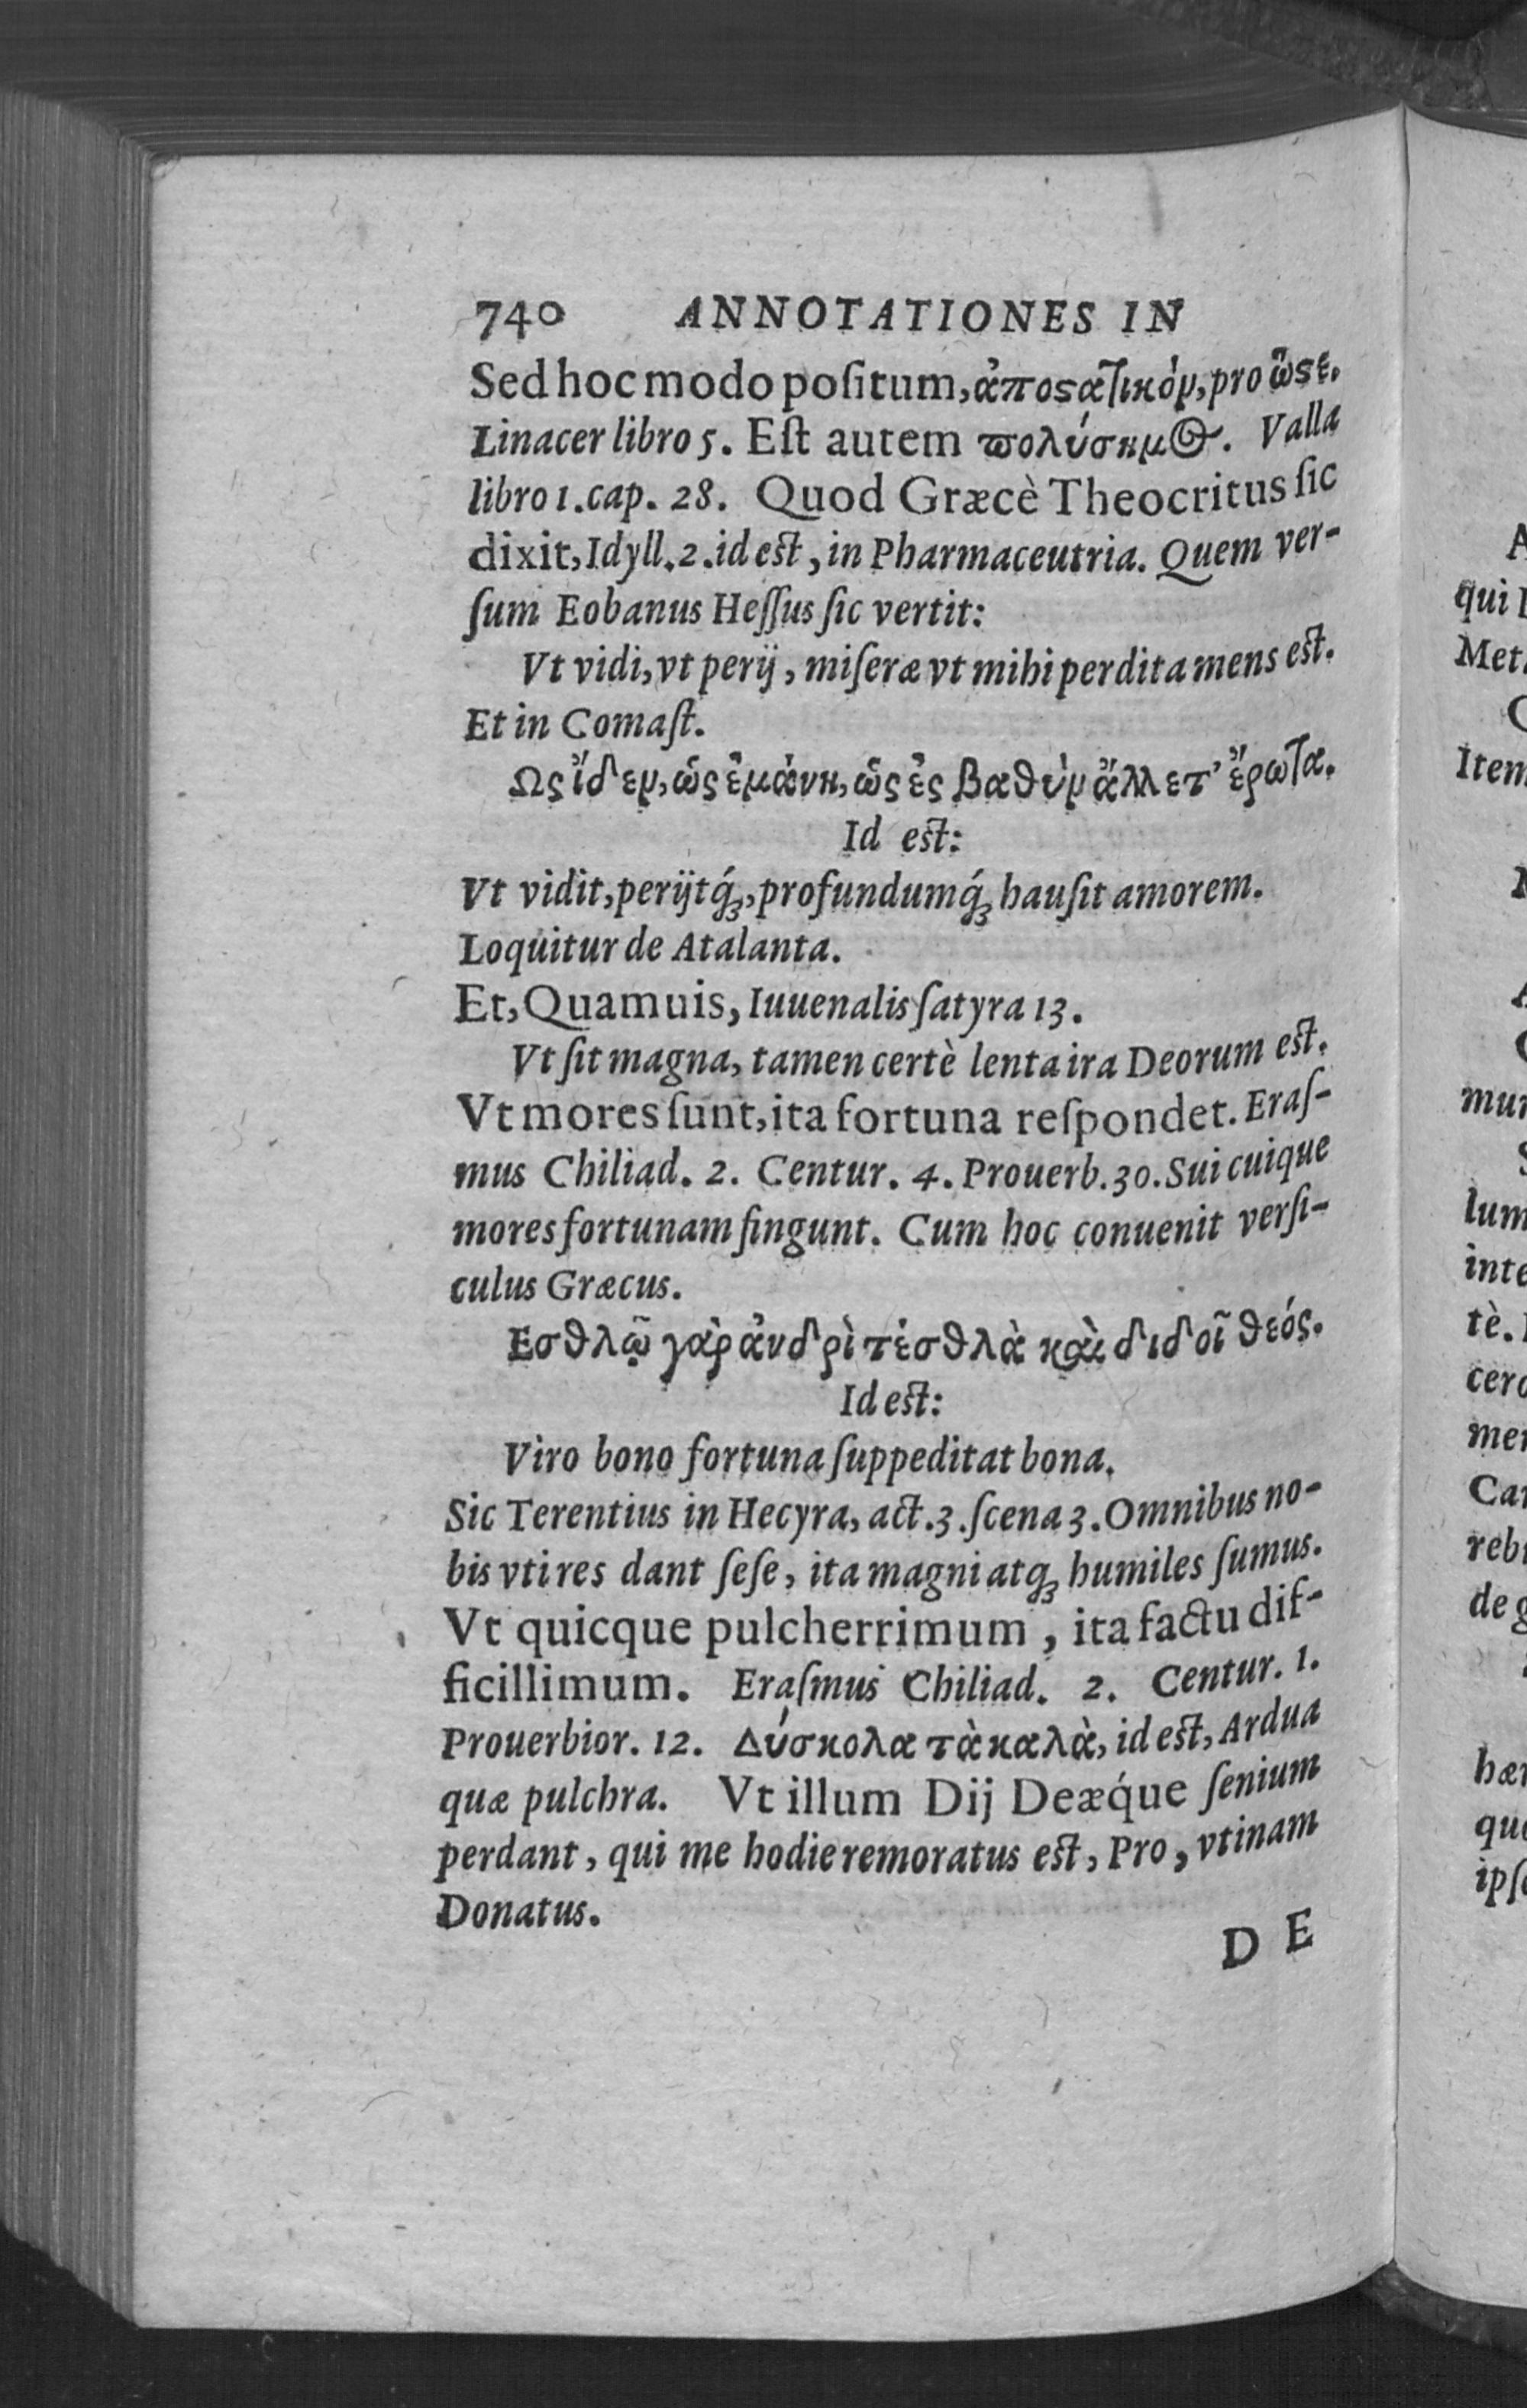 740 ANNOTATIONES IN
Sed hoc modo poſitum, ἀποϛατικόν, pro ὥϛε.
Linacer libro 5. Eſt autem πολύσημος. Valla
libro 1. cap. 28. Quod Græcè Theocritus ſic
dixit, Idyll. 2. id eſt, in Pharmaceutria. Quem ver-
ſum Eobanus Heſſus ſic vertit:
Vt vidi, vt perij, miſeræ vt mihi perdita mens eſt.
Et in Comaſt.
Ως ἴδεν, ὣς ἐμάνη, ὣς ἐς βαθὺν ἅλλετ' ἔρωτα.
Id eſt:
Vt vidit, perijtq́ꝫ, profundumq́ꝫ hauſit amorem.
Loquitur de Atalanta.
Et, Quamuis, Iuuenalis ſatyra 13.
Vt ſit magna, tamen certè lenta ira Deorum eſt.
Vt mores ſunt, ita fortuna reſpondet. Eraſ-
mus Chiliad. 2. Centur. 4. Prouerb. 30. Sui cuique
mores fortunam fingunt. Cum hoc conuenit verſi-
culus Græcus.
Εσθλῷ γὰρ ἀνδρὶ τἐσθλὰ καὶ διδοῖ θεός.
Id eſt:
Viro bono fortuna ſuppeditat bona.
Sic Terentius in Hecyra, act. 3. ſcena 3. Omnibus no-
bis vti res dant ſeſe, ita magni atqꝫ humiles ſumus.
Vt quicque pulcherrimum, ita factu dif-
ficillimum. Eraſmus Chiliad. 2. Centur. 1.
Prouerbior. 12. Δύσκολα τὰ καλὰ, id eſt, Ardua
quæ pulchra. Vt illum Dij Deæq́ue ſenium
perdant, qui me hodie remoratus eſt, Pro, vtinam
Donatus.
DE
qui
Met.
Item
mun
lum
inte
tè.
cero
men
Car
rebu
de g
hær
que
ipſe